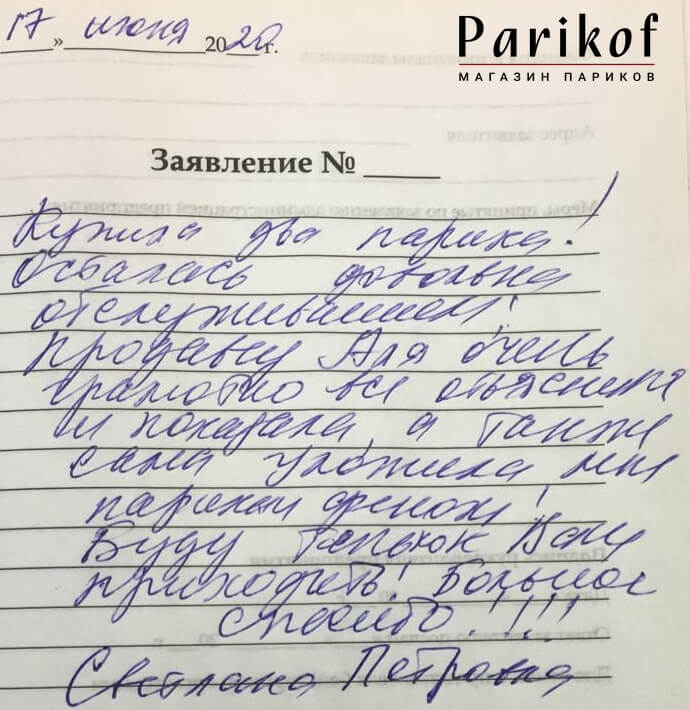 Parikof
МАГАЗИН ПАРИКОВ
17 » июня 2020 г.
Заявление №
Купила два парика!
Осталась довольна
обслуживанием!
Продавец Аля очень
грамотно все объяснила
и показала, а также
сама уложила мне
парики феном!
Буду только к Вам
приходить! Большое
спасибо!!!!
Светлана Петровна